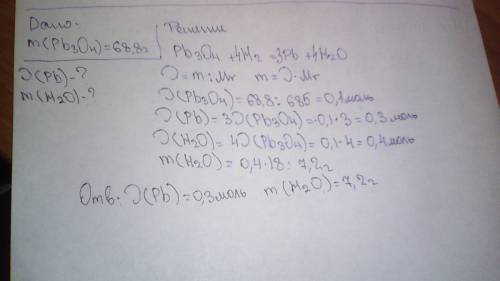 Дано:
m(Pb3O4)=68,8г
Ͻ(Pb)-?
m(H2O)-?
Решение
Pb3O4 +4H2 =3Pb +4H2O
Ͻ=m:Mr m=Ͻ·Mr
Ͻ(Pb3O4)=68,8:685=0,1моль
Ͻ(Pb)=3Ͻ(Pb3O4)=0,1·3=0,3моль
Ͻ(H2O)=4Ͻ(Pb3O4)=0,1·4=0,4моль
m(H2O)=0,4·18=7,2г
Отв. Ͻ(Pb)=0,3моль m(H2O)=7,2г